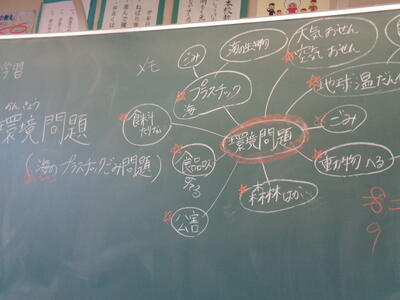 学習
メモ
かんきょう
環境問題
(海のプラスチックごみ問題)
ごみ
海の生き物
プラスチック
海
大気おせん
空気おせん
地球温だん
食料
たりない
環境問題
ごみ
食品ロス
動物へる
森林はかい
公害
8=
9